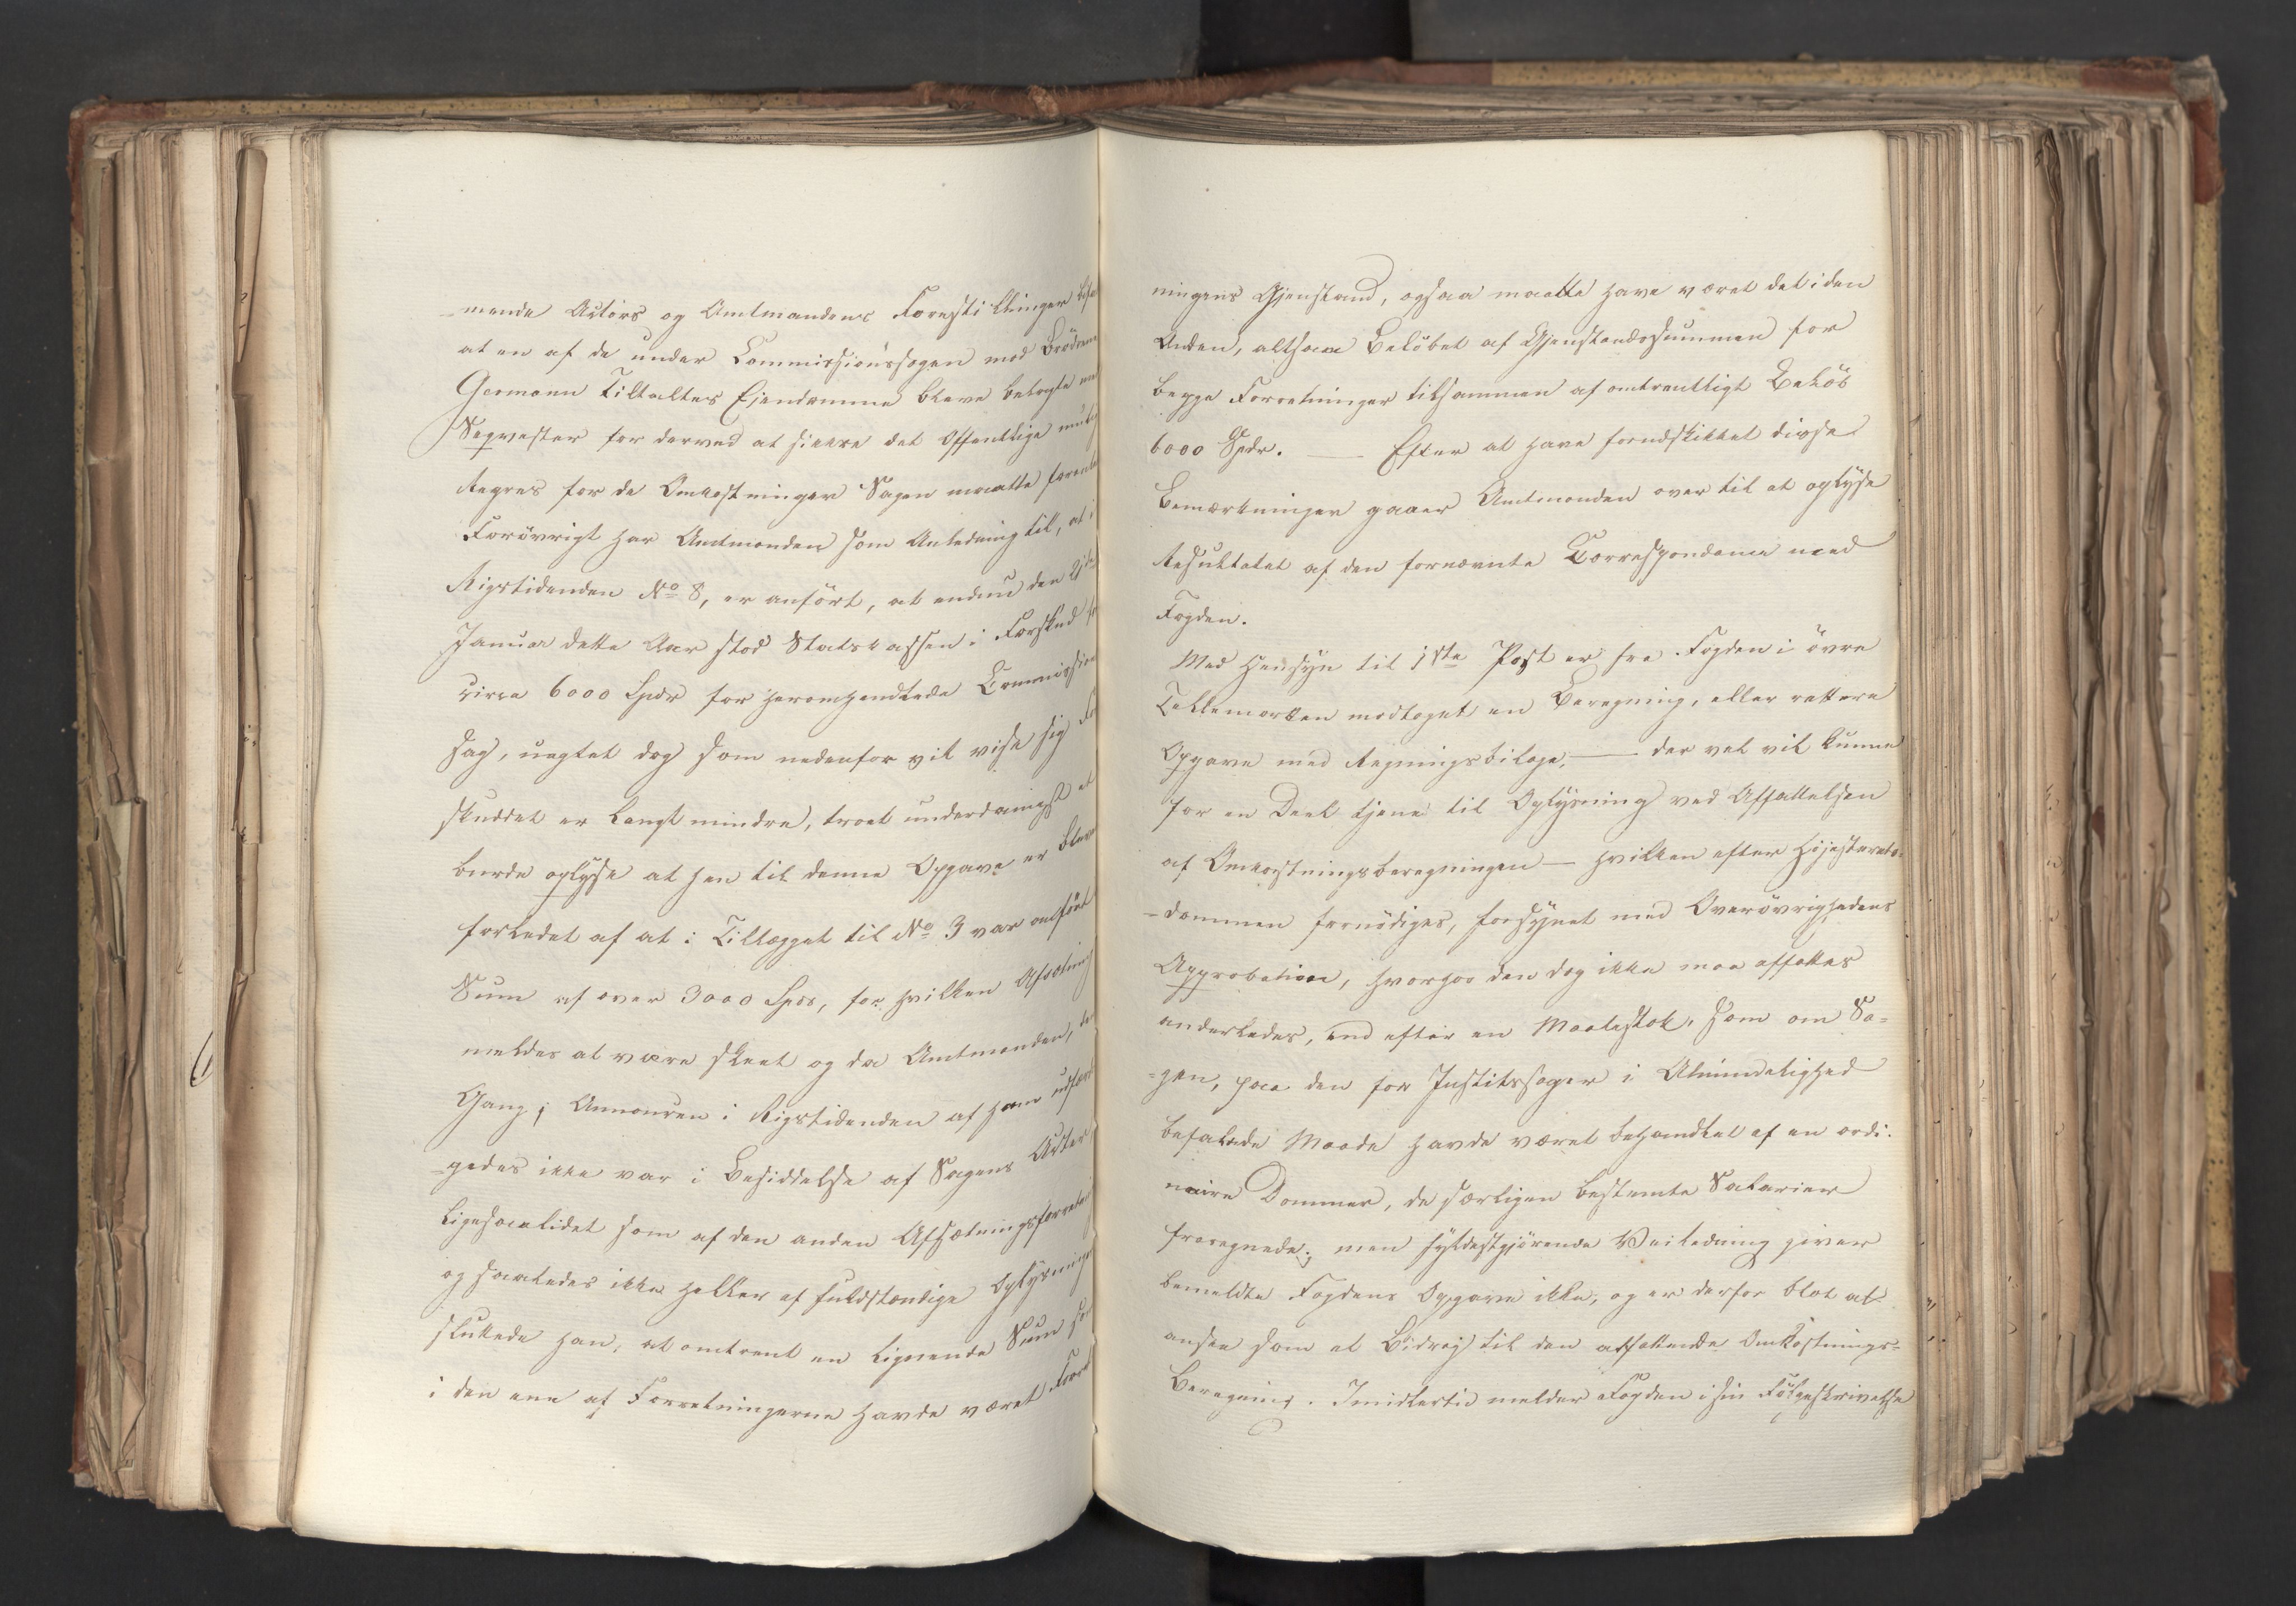 -mende Actors og Amtmandens Forestillinger
at en af de under Commissionssagen mod Brødrene
Germann Tiltaltes Ejendomme bleve belagte med
Seqvester for derved at sikkre det Offentlige mulig
Regres for de Omkostninger Sagen maatte foraarsage
Forövrigt har Amtmanden som Anledning til, at i
Rigstidenden No 8, er anfört, at endnu den 21de
Januar dette Aar stod Statskassen i Forskud for
circa 6000 Spdr for heromhandlede Commissions
sag, uagtet dog som nedenfor vil vise sig For
skuddet er langt mindre, troet underdanigst at
burde oplyse at han til denne Opgave er bleven
forledet af at i Tillægget til No 3 var anfört
Sum af over 3000 Spdr, for hvilken Afsoning
meldes at være skeet og da Amtmanden,
Gang; Annoncen i Rigstidenden af ham udfær
-gedes ikke var i Besiddelse af Sagens Acter
ligesaalidet som af den anden Afsoningsforretning
og saaledes ikke heller af fuldstændige Oplysninger
sluttede han, at omtrent en lignende Sum som
i den ene af Forretningerne havde været Forret
ningens Gjenstand, ogsaa maatte have været det i den
Anden, altsaa Belöbet af Gjenstandssummen for
begge Forretninger tilsammen af omtrentligt Belöb
6000 Spdr. — Efter at have forudskikket disse
Bemærkninger gaaer Amtmanden over til at oplyse
Resultatet af den fornævnte Correspondance med
Fogden.
Med Hensyn til 1ste Post er fra Fogden i övre
Tellemarken modtaget en Beregning, eller rettere
Opgave med Regningsbilage, — der vel vil kunne
for en Deel tjene til Oplysning ved Affattelsen
af Omkostningsberegningen — hvilken efter Höjesterets-
-dommen fornödiges, forsynet med Overövrighedens
Approbation, hvorhos den dog ikke maa affattes
anderledes, end efter en Maalestok, som om Sa-
-gen, paa den for Justitssager i Almindelighed
befalede Maade havde været behandlet af en ordi-
naire Dommer, de særligen bestemte Salarier
fraregnede; men fyldestgjörende Veiledning giver
bemeldte Fogdens Opgave ikke, og er derfor blot at
ansee som et Bidrag til den affattende Omkostnings-
Beregning. Imidlertid melder Fogden i sin Fölgeskrivelse